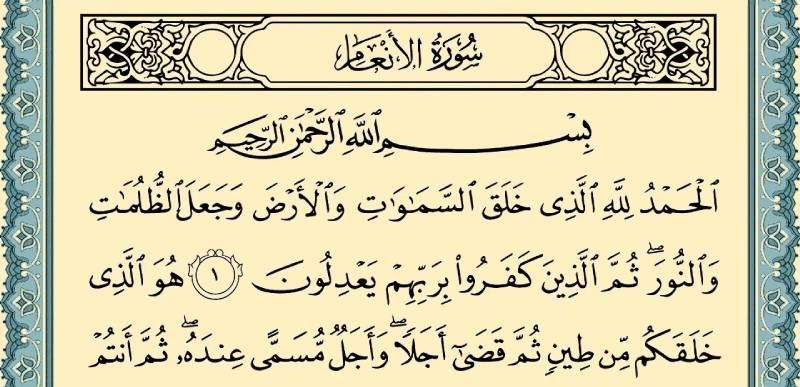 سُورَةُ الأَنْعَامِ
بِسْمِ ٱللَّهِ ٱلرَّحْمَٰنِ ٱلرَّحِيمِ
ٱلْحَمْدُ لِلَّهِ ٱلَّذِى خَلَقَ ٱلسَّمَٰوَٰتِ وَٱلْأَرْضَ وَجَعَلَ ٱلظُّلُمَٰتِ
وَٱلنُّورَۖ ثُمَّ ٱلَّذِينَ كَفَرُوا۟ بِرَبِّهِمْ يَعْدِلُونَ ١ هُوَ ٱلَّذِى
خَلَقَكُم مِّن طِينٍ ثُمَّ قَضَىٰٓ أَجَلًاۖ وَأَجَلٌ مُّسَمًّى عِندَهُۥۖ ثُمَّ أَنتُمْ